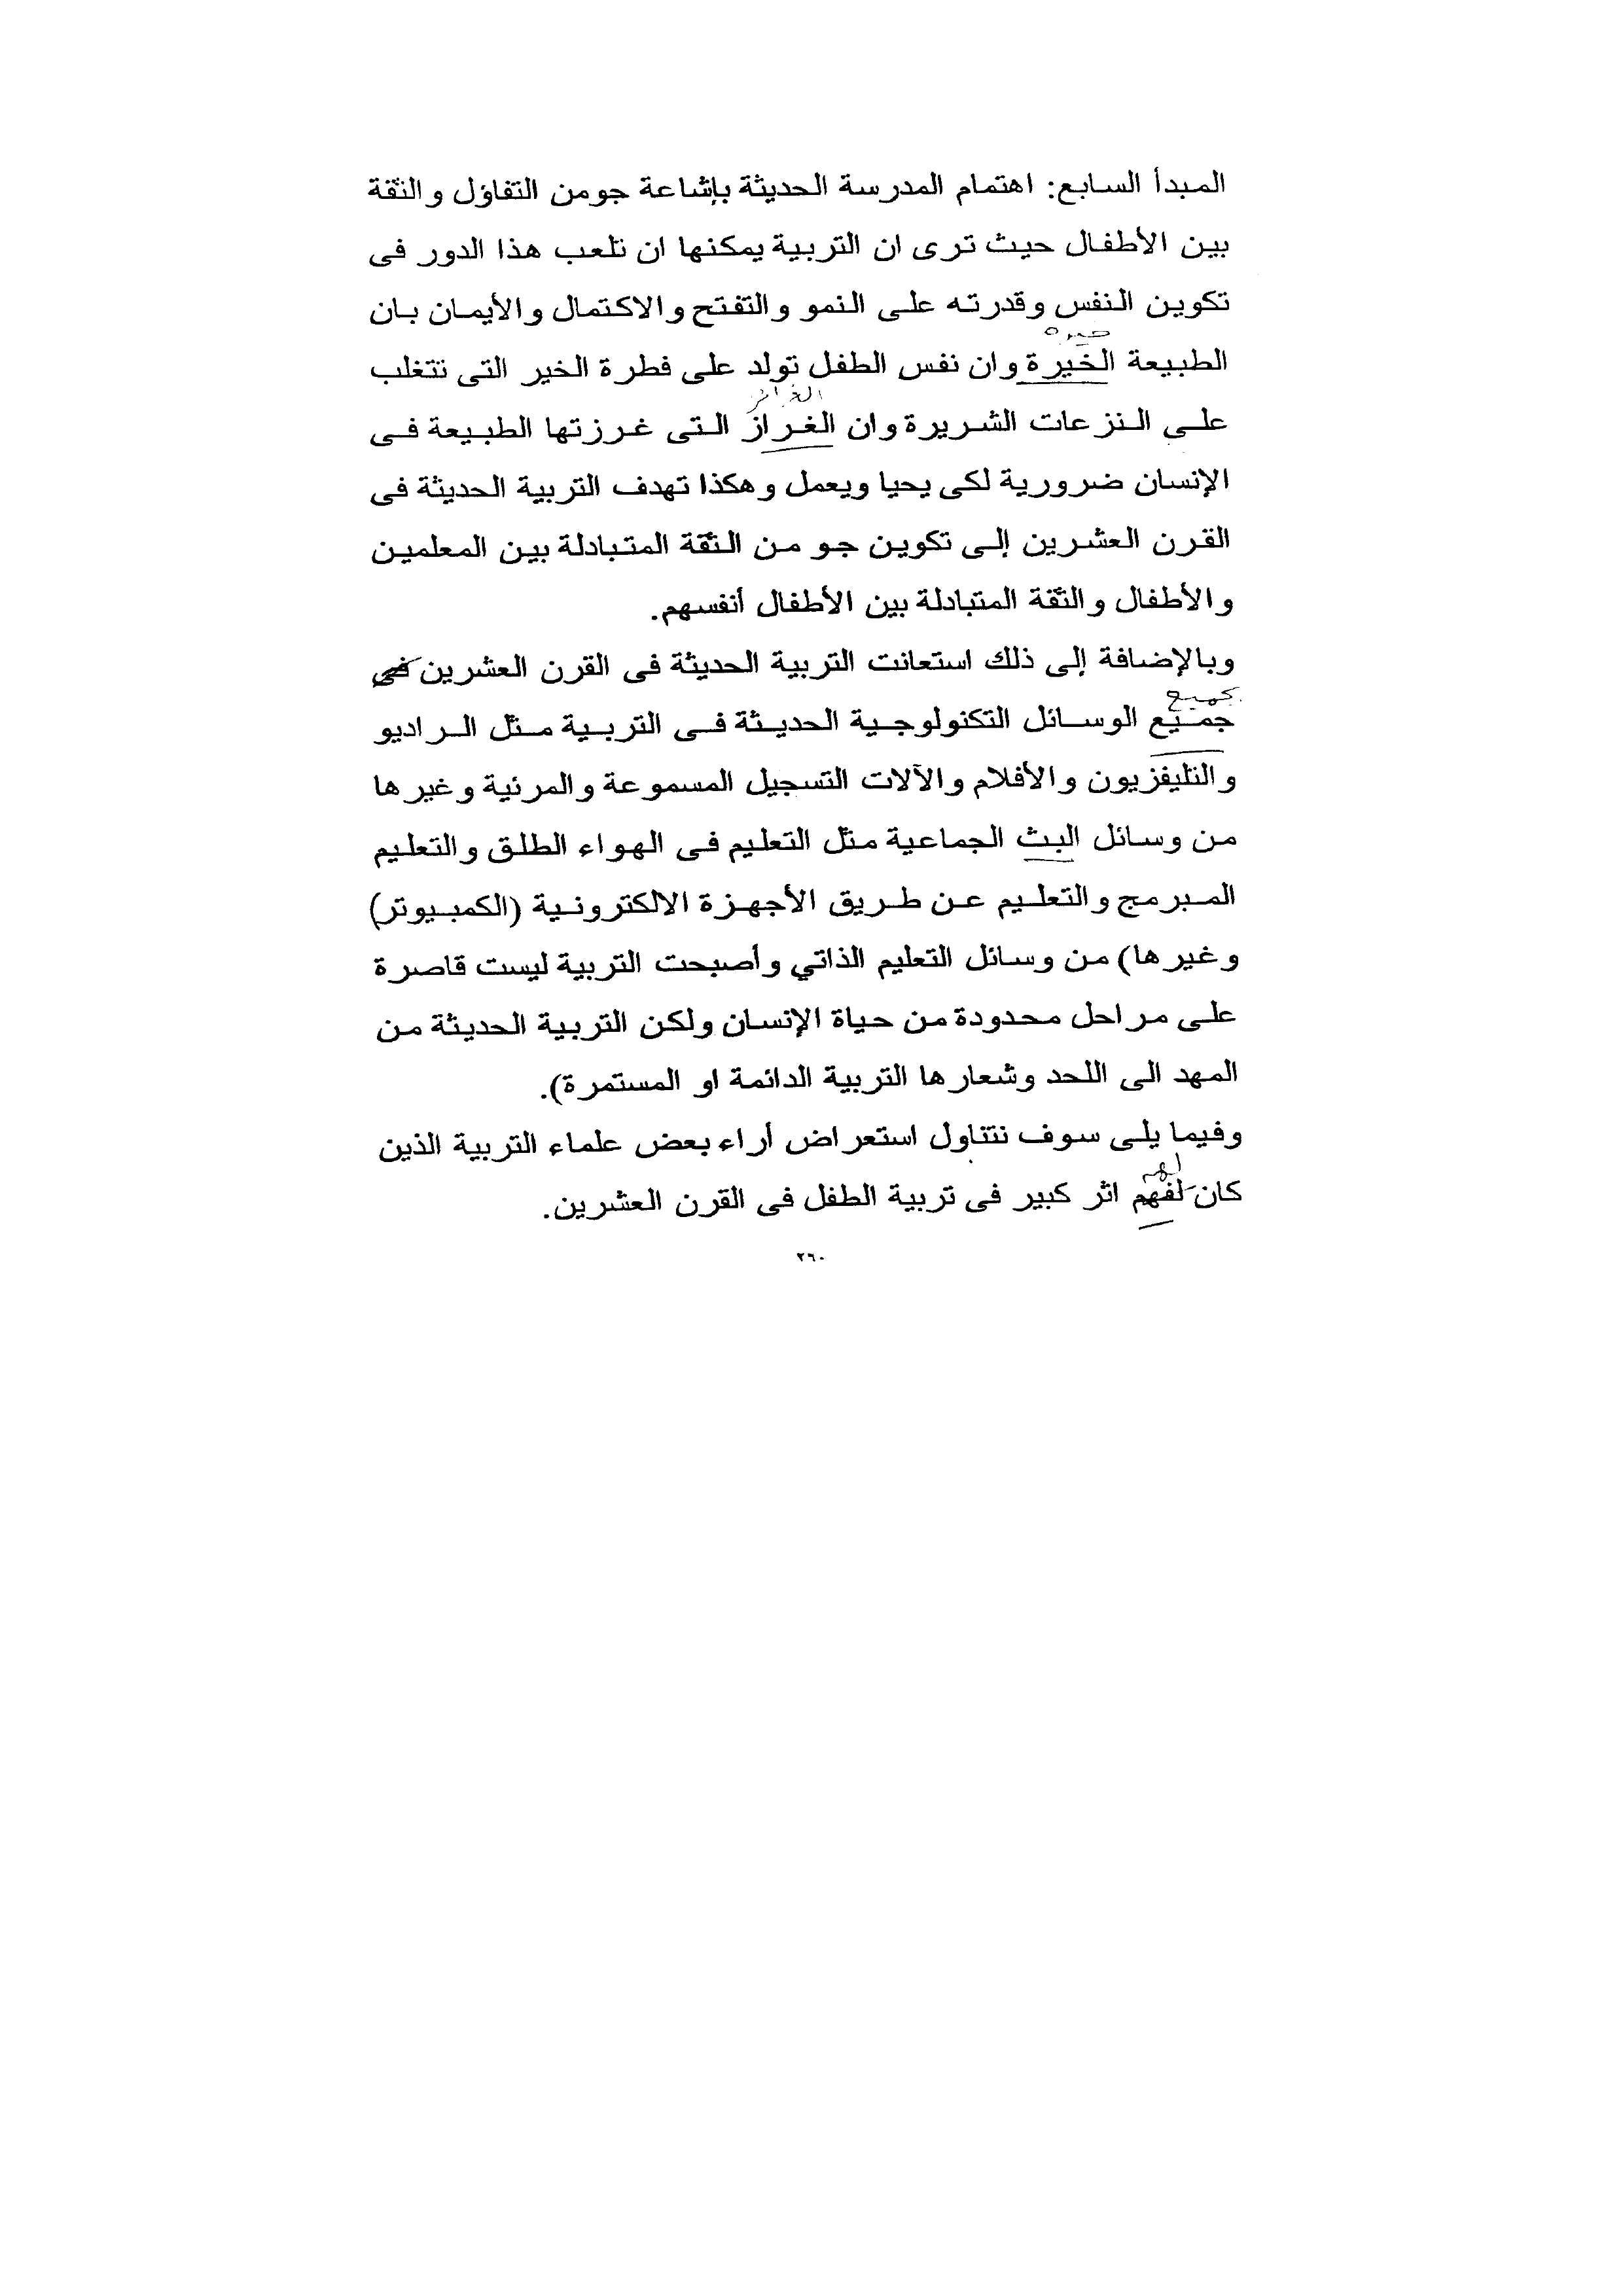 المبدأ السابع: اهتمام المدرسة الحديثة بإشاعة جومن التفاؤل والثقة
بين الأطفال حيث ترى ان التربية يمكنها ان تلعب هذا الدور فى
تكوين النفس وقدرته على النمو والتفتح والاكتمال والأيمان بان
خيره
الطبيعة الخيرة وان نفس الطفل تولد على فطرة الخير التى تتغلب
الغرائز
على النزعات الشريرة وان الغراز التى غرزتها الطبيعة فى
الإنسان ضرورية لكى يحيا ويعمل وهكذا تهدف التربية الحديثة فى
القرن العشرين إلى تكوين جو من الثقة المتبادلة بين المعلمين
والأطفال والثقة المتبادلة بين الأطفال أنفسهم.
وبالإضافة إلى ذلك استعانت التربية الحديثة فى القرن العشرين فى
بجميع
جميع الوسائل التكنولوجية الحديثة فى التربية مثل الراديو
والتليفزيون والأفلام والآلات التسجيل المسموعة والمرئية وغيرها
من وسائل البث الجماعية مثل التعليم فى الهواء الطلق والتعليم
المبرمج والتعليم عن طريق الأجهزة الالكترونية (الكمبيوتر)
وغيرها) من وسائل التعليم الذاتي وأصبحت التربية ليست قاصرة
على مراحل محدودة من حياة الإنسان ولكن التربية الحديثة من
المهد الى اللحد وشعارها التربية الدائمة او المستمرة).
وفيما يلى سوف نتناول استعراض أراء بعض علماء التربية الذين
لهم
كان لفهم اثر كبير فى تربية الطفل فى القرن العشرين.
٢٦٠